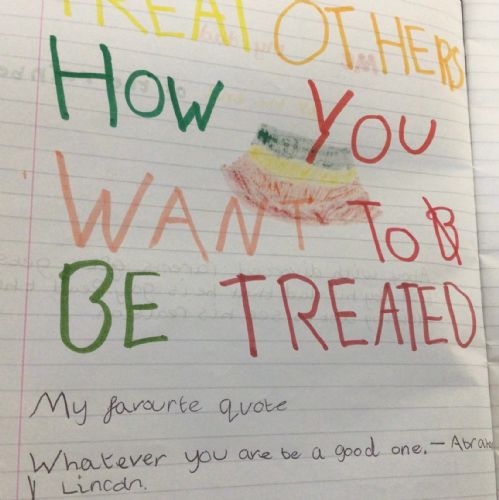 TREAT OTHERS
HOW YOU
WANT TO B
BE TREATED
My favourte quote
Whatever you are be a good one. – Abra
Lincoln.